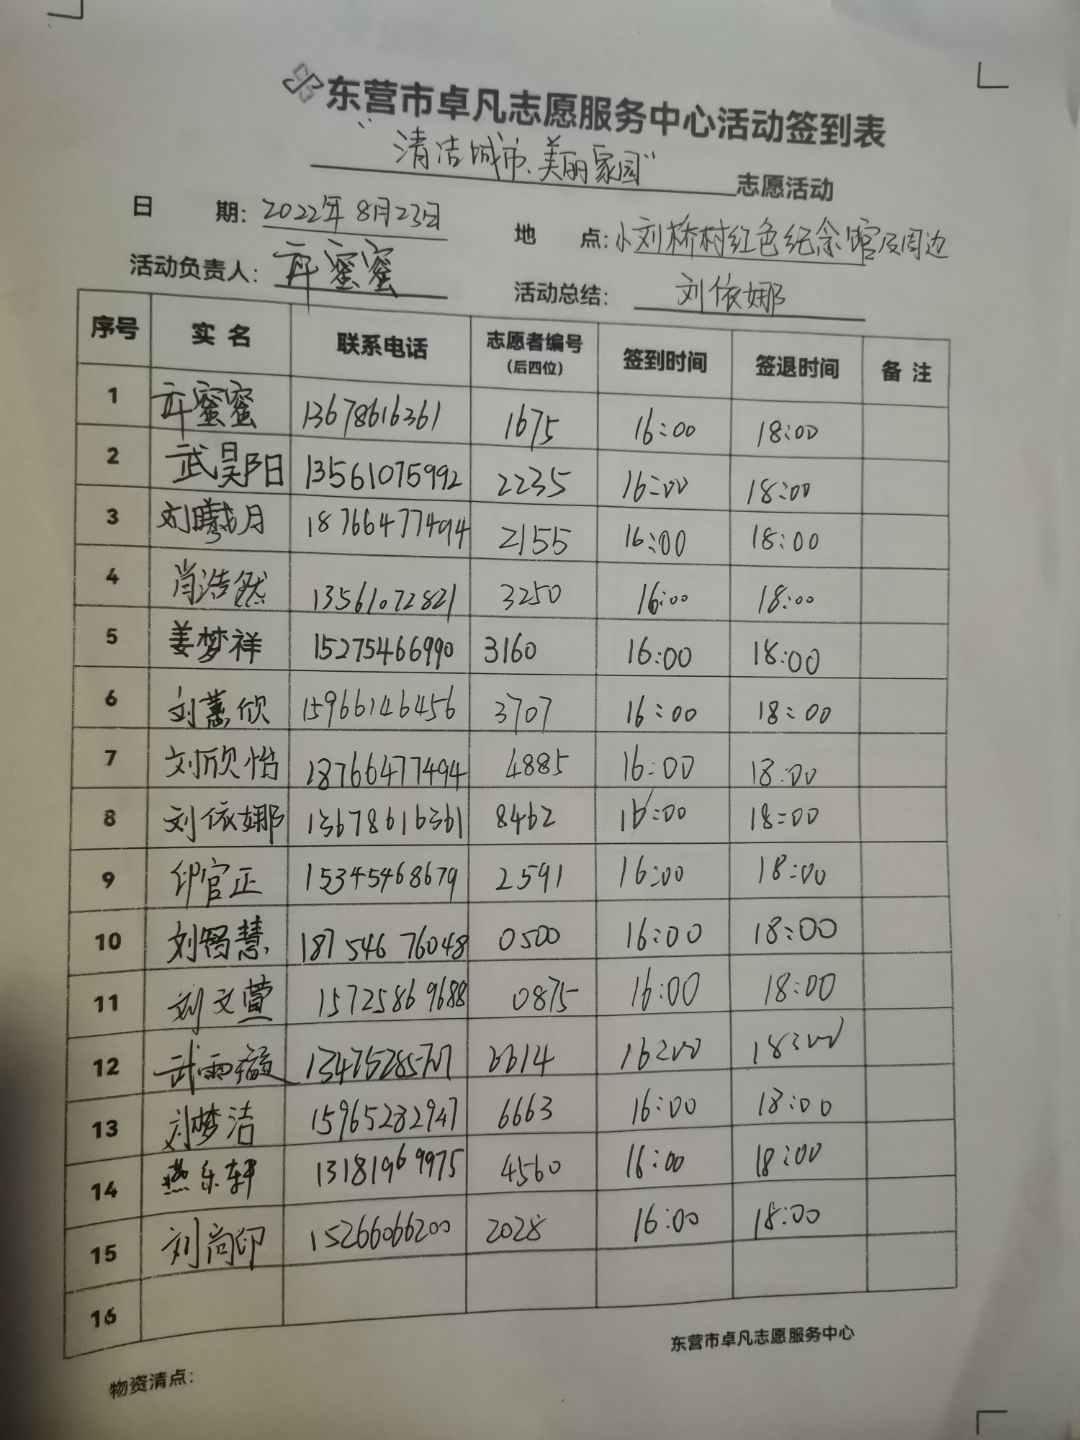 东营市卓凡志愿服务中心活动签到表
“清洁城市、美丽家园”志愿活动
日 期: 2022年8月23日 地 点: 小刘桥村红色纪念馆及周边
活动负责人: 蜜蜜 活动总结: 刘依娜
序号 实名 联系电话 志愿者编号(后四位) 签到时间 签退时间 备注
1 蜜蜜 13678616361 1675 16:00 18:00
2 武昊阳 13561075992 2235 16:00 18:00
3 刘曦月 18766477494 2155 16:00 18:00
4 肖浩然 13561072821 3250 16:00 18:00
5 姜梦祥 15275466990 3160 16:00 18:00
6 刘蕙欣 15966146456 3707 16:00 18:00
7 刘欣怡 18766477494 4885 16:00 18:00
8 刘依娜 13678616361 8462 16:00 18:00
9 印官正 15345468679 2591 16:00 18:00
10 刘畅慧 187 546 76048 0500 16:00 18:00
11 刘文萱 15725869688 0875 16:00 18:00
12 武雨 6614 16:00 18:00
13 刘梦洁 15965282947 6663 16:00 18:00
14 燕乐轩 13181969975 4560 16:00 18:00
15 刘尚印 15266066200 2028 16:00 18:00
16
东营市卓凡志愿服务中心
物资清点: